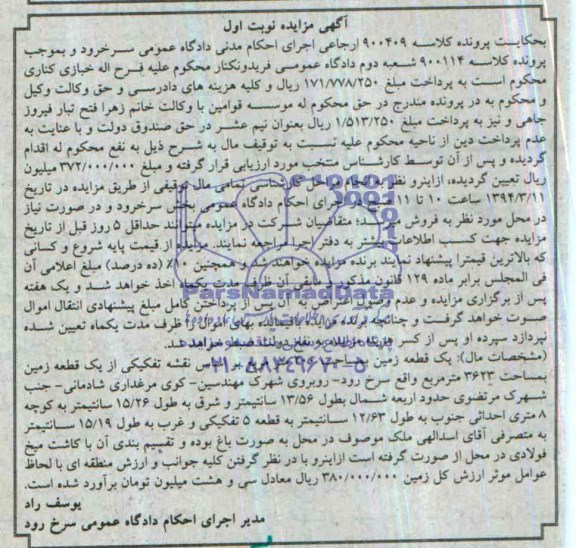 آگهی مزایده نوبت اول
بحکایت پرونده کلاسه ۹۰۰۴۰۹ ارجاعی اجرای احکام مدنی دادگاه عمومی سرخرود و بموجب
پرونده کلاسه ۹۰۰۱۱۴ شعبه دوم دادگاه عمومی فریدونکنار محکوم علیه فرح اله خبازی کناری
محکوم است به پرداخت مبلغ ۱۷۱/۷۷۸/۲۵۰ ریال و کلیه هزینه های دادرسی و حق وکالت وکیل
و محکوم به در پرونده مندرج در حق محکوم له موسسه قوامین با وکالت خانم زهرا فتح تبار فیروز
جاهی و نیز به پرداخت مبلغ ۱/۵۱۳/۲۵۰ ریال بعنوان نیم عشر در حق صندوق دولت و با عنایت به
عدم پرداخت دین از ناحیه محکوم علیه نسبت به توقیف مال به شرح ذیل به نفع محکوم له اقدام
گردیده و پس از آن توسط کارشناس منتخب مورد ارزیابی قرار گرفته و مبلغ ۳۷۲/۰۰۰/۰۰۰ میلیون
ریال تعیین گردیده، ازاینرو نظر به انجام مراحل کارشناسی تمامی مال توقیفی از طریق مزایده در تاریخ
۱۳۹۴/۳/۱۱ ساعت ۱۰ تا ۱۱ اجرای احکام دادگاه عمومی بخش سرخرود و در صورت نیاز
در محل مورد نظر به فروش متقاضیان شرکت در مزایده میتوانند حداقل ۵ روز قبل از تاریخ
مزایده جهت کسب اطلاعات بیشتر به دفتر اجرا مراجعه نمایند. مزایده از قیمت پایه شروع و کسانی
که بالاترین قیمترا پیشنهاد نمایند برنده مزایده خواهند شد و همچنین ۱۰٪ (ده درصد) مبلغ اعلامی آن
فی المجلس برابر ماده ۱۲۹ قانون مذکور و مابقی آن ظرف مدت یکماه اخذ خواهد شد و یک هفته
پس از برگزاری مزایده و عدم آن پس از پرداختن کامل مبلغ پیشنهادی انتقال اموال
صوت خواهد گرفت و چنانچه برنده مزایده باقیمانده بهای اموال را ظرف مدت یکماه تعیین شده
نپردازد سپرده او پس از کسر هزینه مزایده به نفع دولت ضبط خواهد شد.
(مشخصات مال): یک قطعه زمین بمساحت بر اساس نقشه تفکیکی از یک قطعه زمین
بمساحت ۳۶۲۳ مترمربع واقع سرخ رود- روبروی شهرک مهندسین- کوی مرغداری شادمانی- جنب
شهرک مرتضوی حدود اربعه شمال بطول ۱۳/۵۶ سانتیمتر و شرق به طول ۱۵/۲۶ سانتیمتر به کوچه
۸ متری احداثی جنوب به طول ۱۲/۶۳ سانتیمتر به قطعه ۵ تفکیکی و غرب به طول ۱۵/۱۹ سانتیمتر
به متصرفی آقای اسدالهی ملک موصوف در محل به صورت باغ بوده و تقسیم بندی آن با کاشت میخ
فولادی در محل از صورت گرفته است ازاینرو با در نظر گرفتن کلیه جوانب و ارزش منطقه ای با لحاظ
عوامل موثر ارزش کل زمین ۳۸۰/۰۰۰/۰۰۰ ریال معادل سی و هشت میلیون تومان برآورد شده است.
یوسف راد
مدیر اجرای احکام دادگاه عمومی سرخ رود
ParsNamadData
۰۲۱-۸۸۳۴۹۶۷۰-۵